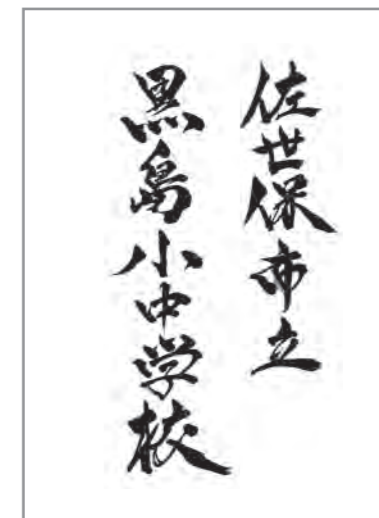 佐世保市立
黒島小中学校